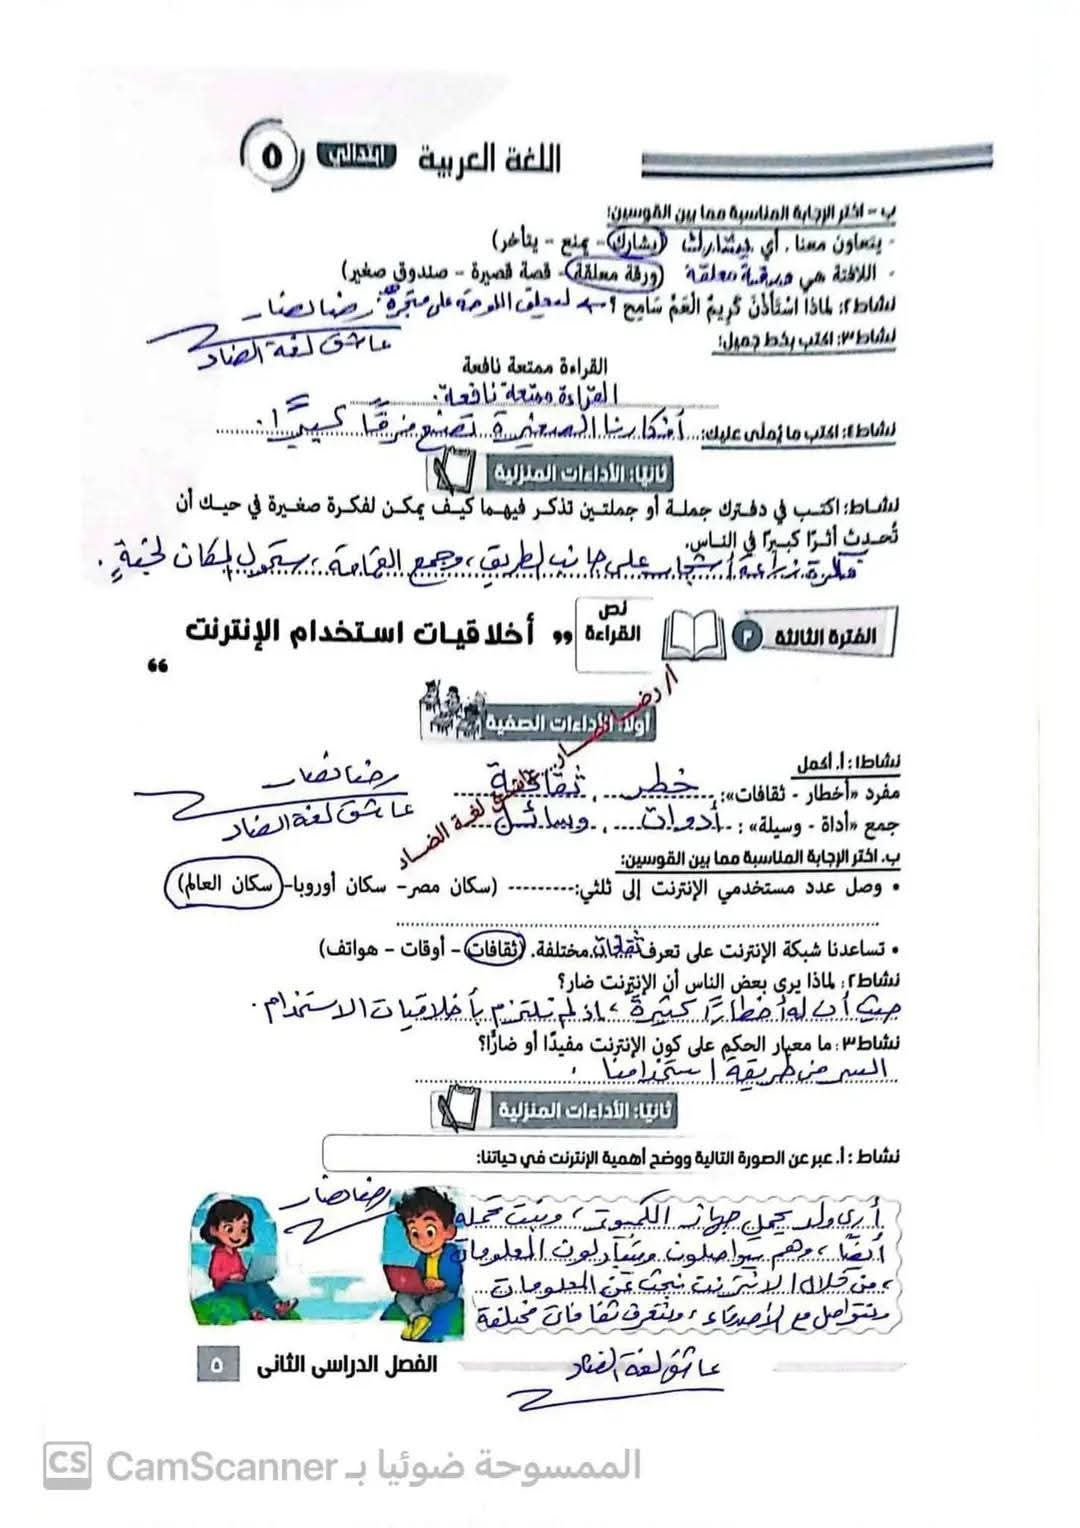 اللغة العربية ابتدائي ٥
ب - اختر الإجابة المناسبة مما بين القوسين:
- يتعاون معنا، أي يشارك (يشارك - يمنع - يتأخر)
- اللافتة هي ورقة معلقة (ورقة معلقة - قصة قصيرة - صندوق صغير)
نشاط٢: لماذا اسْتَأْذَنَ كَرِيمُ الْعَمَّ سَامِحٍ؟ لتعليق اللوحة على متجره. رضا نصار
عاشق لغة الضاد
نشاط٣: اكتب بخط جميل:
القراءة ممتعة نافعة
القراءة ممتعة نافعة.
نشاط٤: اكتب ما يُملى عليك: أفكارنا الصغيرة تصنع فرقًا كبيرًا.
ثانيًا: الأداءات المنزلية
نشاط: اكتب في دفترك جملة أو جملتين تذكر فيهما كيف يمكن لفكرة صغيرة في حيك أن
تُحدِث أثرًا كبيرًا في الناس.
فكرة زراعة أشجار على جانب الطريق، وجمع القمامة، ستحول المكان لجنةٍ.
الفترة الثالثة ٣ نص القراءة „ أخلاقيات استخدام الإنترنت
“
أ/ رضا نصار.. عاشق لغة الضاد
أولًا: الأداءات الصفية
نشاط١: أ. أكمل
رضا نصار
مفرد «أخطار - ثقافات»: خطر، ثقافة
عاشق لغة الضاد
جمع «أداة - وسيلة»: أدوات، وسائل
ب. اختر الإجابة المناسبة مما بين القوسين:
• وصل عدد مستخدمي الإنترنت إلى ثلثي:--------- (سكان مصر- سكان أوروبا- سكان العالم)
• تساعدنا شبكة الإنترنت على تعرف ثقافات مختلفة. (ثقافات - أوقات - هواتف)
نشاط٢: لماذا يرى بعض الناس أن الإنترنت ضار؟
حيث أن له أخطارًا كثيرة، إذ لم نلتزم بأخلاقيات الاستخدام.
نشاط٣: ما معيار الحكم على كون الإنترنت مفيدًا أو ضارًا؟
السر في طريقة استخدامنا.
ثانيًا: الأداءات المنزلية
نشاط : أ. عبر عن الصورة التالية ووضح أهمية الإنترنت في حياتنا:
رضا نصار
أرى ولد يحمل جهاز الكمبيوتر، وبنت تحمله
أيضًا، وهم يتواصلون ويتبادلون المعلومات
، من خلال الانترنت نبحث عن المعلومات
ونتواصل مع الأصدقاء، ونتعرف ثقافات مختلفة
عاشق لغة الضاد
الفصل الدراسى الثانى ٥
الممسوحة ضوئيا بـ CamScanner
CS